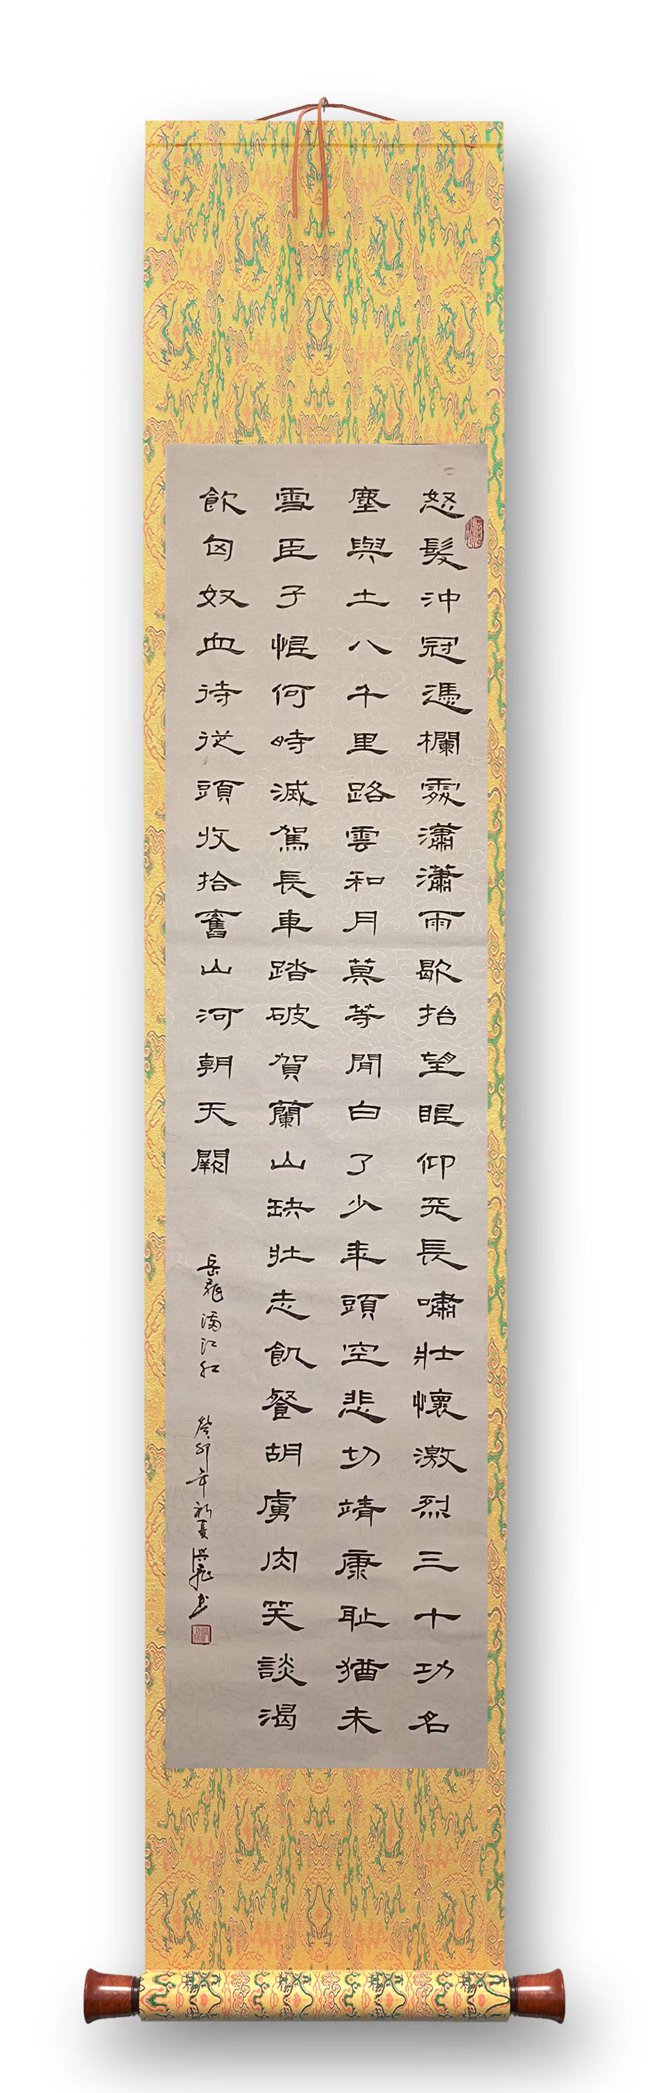 怒髮沖冠憑欄處瀟瀟雨歇抬望眼仰天長嘯壯懷激烈三十功名
塵與土八千里路雲和月莫等閒白了少年頭空悲切靖康耻猶未
雪臣子恨何時滅駕長車踏破賀蘭山缺壯志飢餐胡虜肉笑談渴
飲匈奴血待從頭收拾舊山河朝天闕
岳飛滿江紅 癸卯年初夏洪書